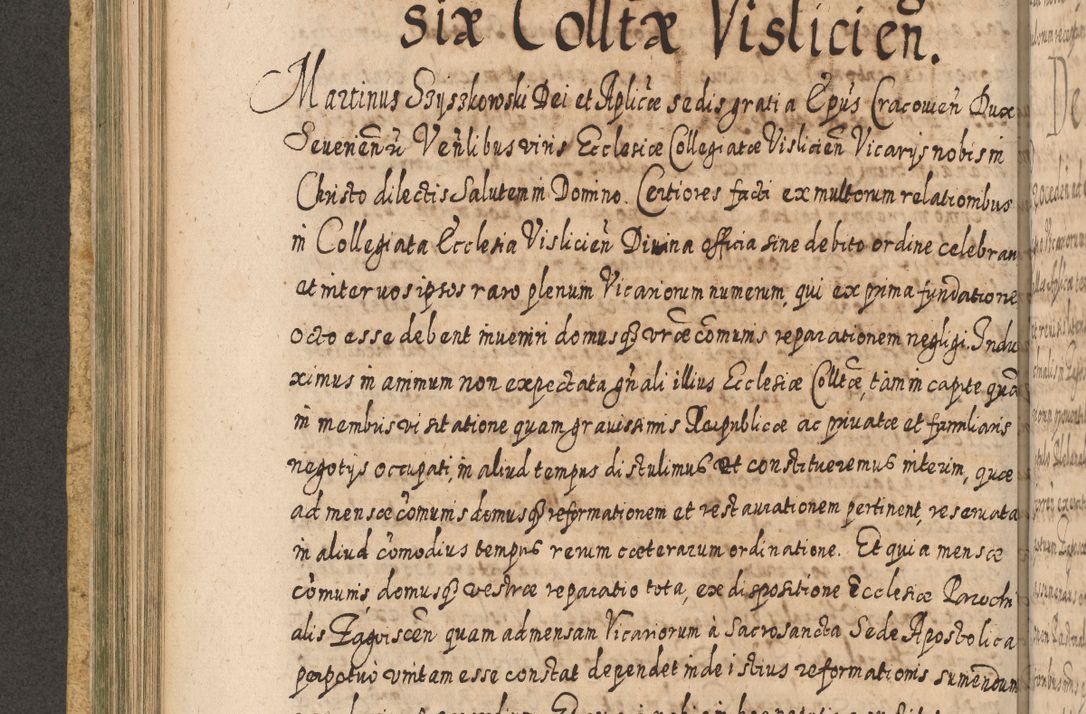 siæ Colltæ Vislicień.
Martinus Szyszkowski Dei et Aplicæ sedis gratia Epūs Cracovień Dux
Severień Veńlibus viris Ecclesiæ Collegiatæ Vislicień Vicarijs nobis in
Christo dilectis Salutem in Domino. Certiores facti ex multorum relationibus
in Collegiata Ecclesia Vislicień Divina officia sine debito ordine celebrari
et inter vos ipsos raro plenum Vicariorum numerum, qui ex prima fundatione
octo esse debent inveniri domusq3 vræ comunis reparationem negligi. Indu
ximus in animum non expectata gńali illius Ecclesiæ Colltæ, tam in capite quā
in membris visitatione quam gravissimis Reipublicæ ac privatæ et familiaris
negotijs occupati, in aliud tempus distulimus ut constitueremus interim, quæ
ad mensæ comunis domusq3 reformationem et restaurationem pertinent, reservata
in aliud comodius tempus rerum cæterarum ordinatione. Et quia mensæ
comunis, domusq3 vestræ reparatio tota, ex dispositione Ecclesiæ Parochi
alis Zagoiscēn quam ad mensam Vicariorum à Sacrosancta Sede Apostolica
perpetuò unitam esse constat dependet inde istius reformationis sumendum